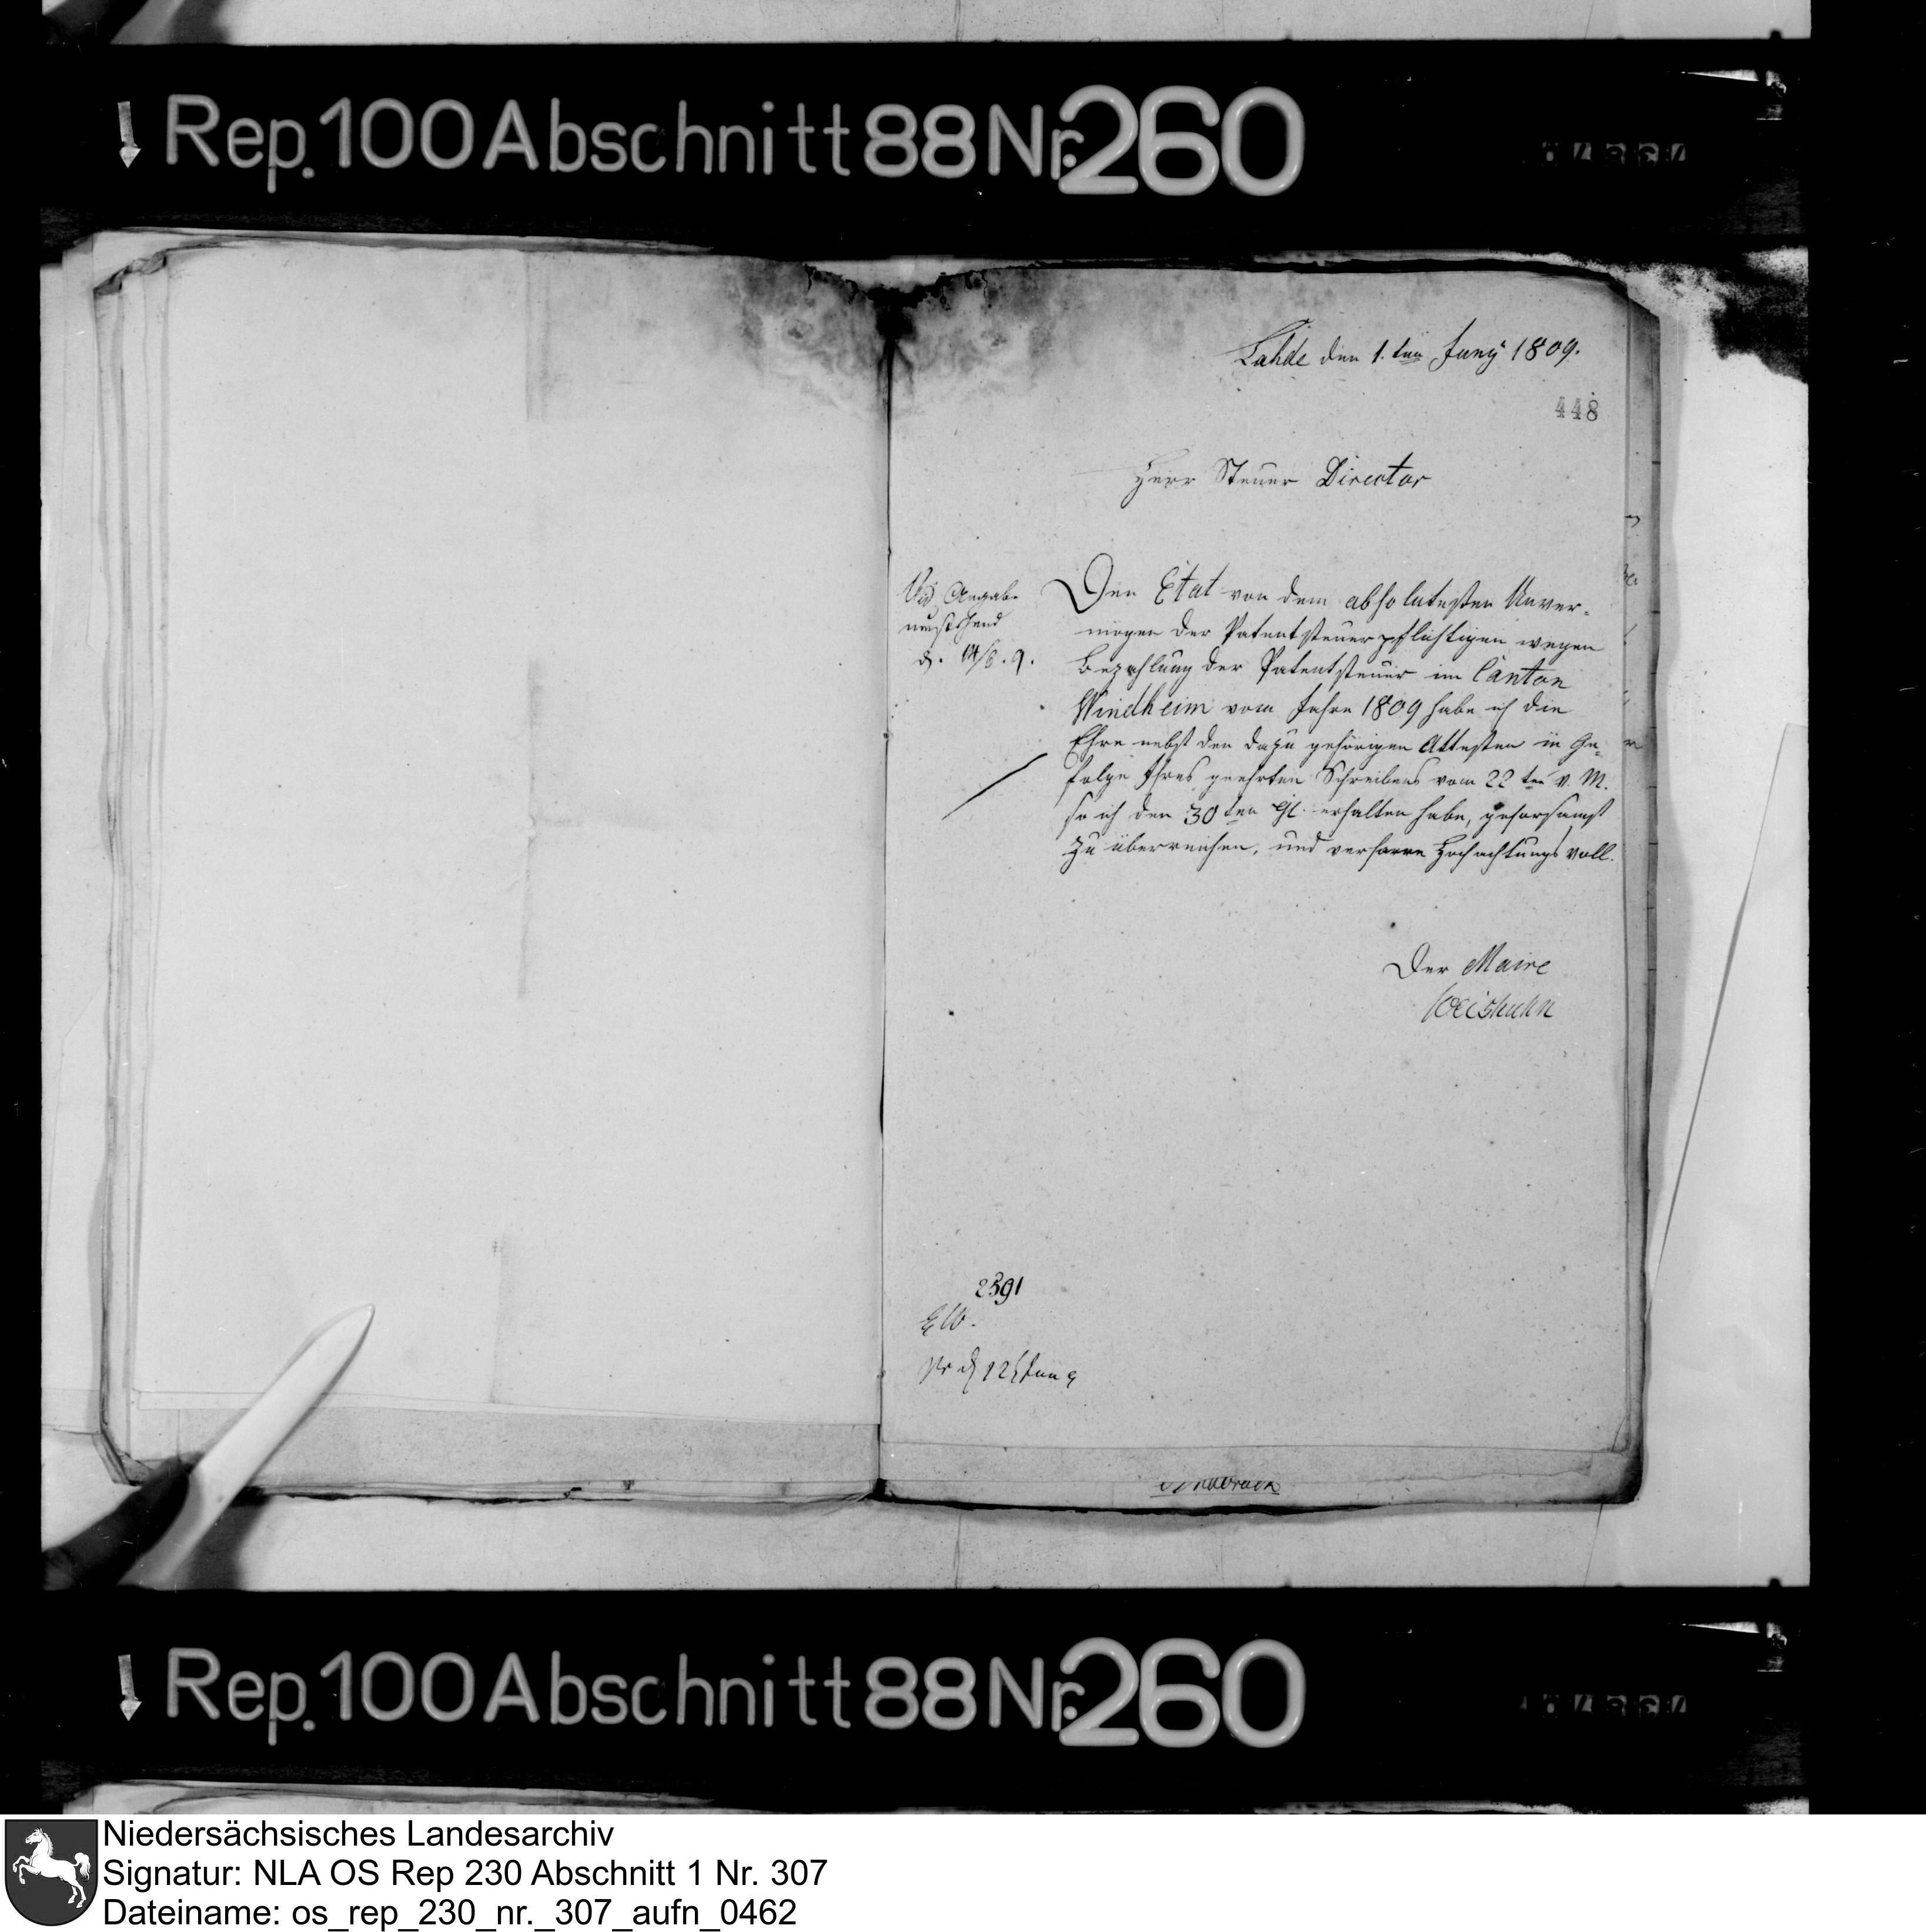 Rep. 100 Abschnitt 88 Nr. 260
Lahde den 1.ten Juny 1809.
448
Herr Steuer Director
Den Etat von dem absolutesten Unver-
mögen der Patentsteuerpflichtigen wegen
Bezahlung der Patentsteuer im Canton
Windheim vom Jahre 1809 habe ich die
Ehre nebst den dazu gehörigen Attesten in Ge-
folge Ihres geehrten Schreibens vom 22ten v. M.
so ich den 30ten ej. erhalten habe, gehorsamst
zu überreichen, und verharre Hochachtungsvoll.
Der Maire
Angabe
2391
Rep. 100 Abschnitt 88 Nr. 260
Niedersächsisches Landesarchiv
Signatur: NLA OS Rep 230 Abschnitt 1 Nr. 307
Dateiname: os_rep_230_nr._307_aufn_0462